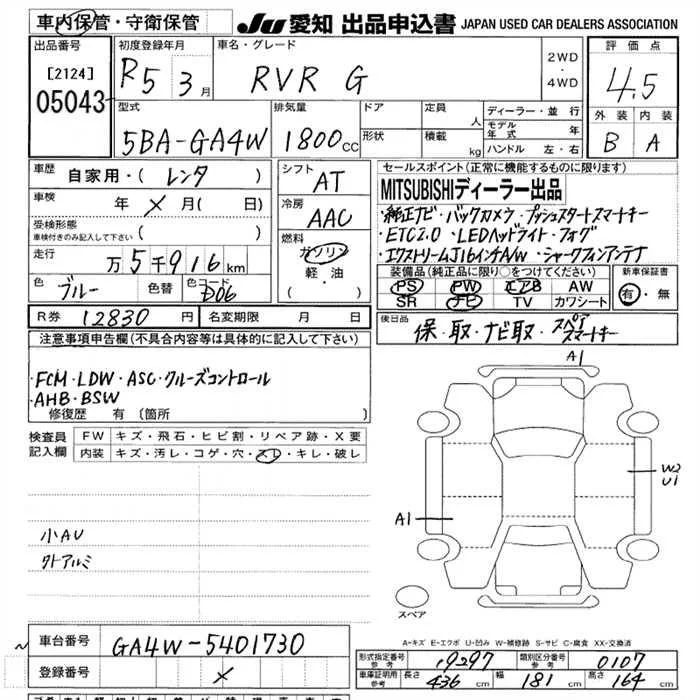 車内保管・守衛保管
JU 愛知 出品申込書 JAPAN USED CAR DEALERS ASSOCIATION
出品番号
[2124]
05043
初度登録年月
R5 3月
車名・グレード
RVR G
2WD
・
4WD
評価点
4.5
外装 内装
B A
型式
5BA-GA4W
排気量
1800cc
ドア
形状
定員 人
積載 kg
ディーラー・並行
モデル年式 年
ハンドル 左・右
車歴 自家用・( レンタ )
車検 年 × 月 ( 日)
受検形態
車検付きのみ記入して下さい ( )
走行 万 5 千 916 km
色 ブルー 色替 色コード D06
シフト
AT
冷房
AAC
燃料
ガソリン
軽・油
( )
セールスポイント(正常に機能するものに限ります)
MITSUBISHIディーラー出品
・純正ナビ・バックカメラ・プッシュスタートスマートキー
・ETC2.0 ・LEDヘッドライト・フォグ
・エクストリームJ16インチAW・シャークフィンアンテナ
装備品(純正品に限り○をつけてください)
PS PW エアB AW
SR ナビ TV カワシート
新車保証書
有・無
R券 12830円 名変期限 月 日
後日品
保・取・ナビ取・スペアスマートキー
注意事項申告欄(不具合内容等は具体的に記入して下さい)
・FCM・LDW・ASC・クルーズコントロール
・AHB・BSW
修復歴 有 〔箇所 〕
検査員記入欄
FW キズ・飛石・ヒビ割・リペア跡・X要
内装 キズ・汚レ・コゲ・穴・スレ・キレ・破レ
小AU
外アルミ
A1
W2
U1
A1
スペア
A-キズ E-エクボ U-凹み W-補修跡 S-サビ C-腐食 XX-交換済
車台番号 GA4W-5401730
登録番号 ×
形式指定番号 参考 19297 類別区分番号 参考 0107
車庫証明用 参考 長さ 436 cm 幅 181 cm 高さ 164 cm